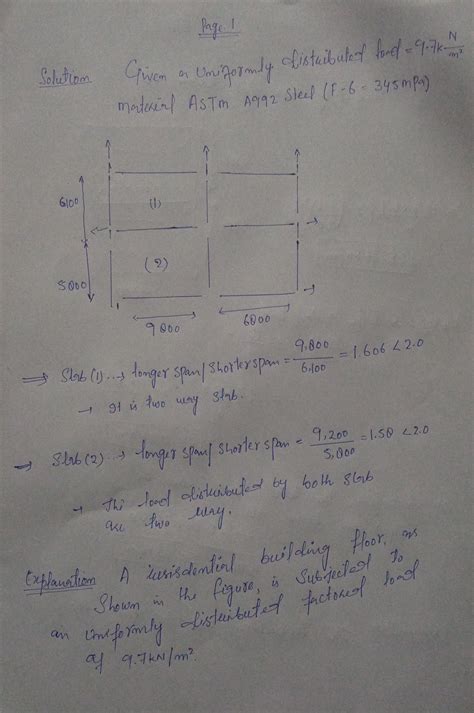 Page: 1
Solution Given a Uniformly distributed load = 9.7k N/m²
material ASTM A992 Steel (F-6 = 345mpa)
6100
(1)
(2)
5800
9800
6800
⇒ Slab (1) ...→ longer span/shorter span = 9,800/6,100 = 1.606 < 2.0
→ It is two way slab.
→ Slab (2) ...→ longer span/shorter span = 9,200/5,800 = 1.58 < 2.0
→ The load distributed by both slab
are two way.
Explanation A residential building floor, as
Shown in the figure, is Subjected to
an Uniformly distributed factored load
of 9.7kN/m².